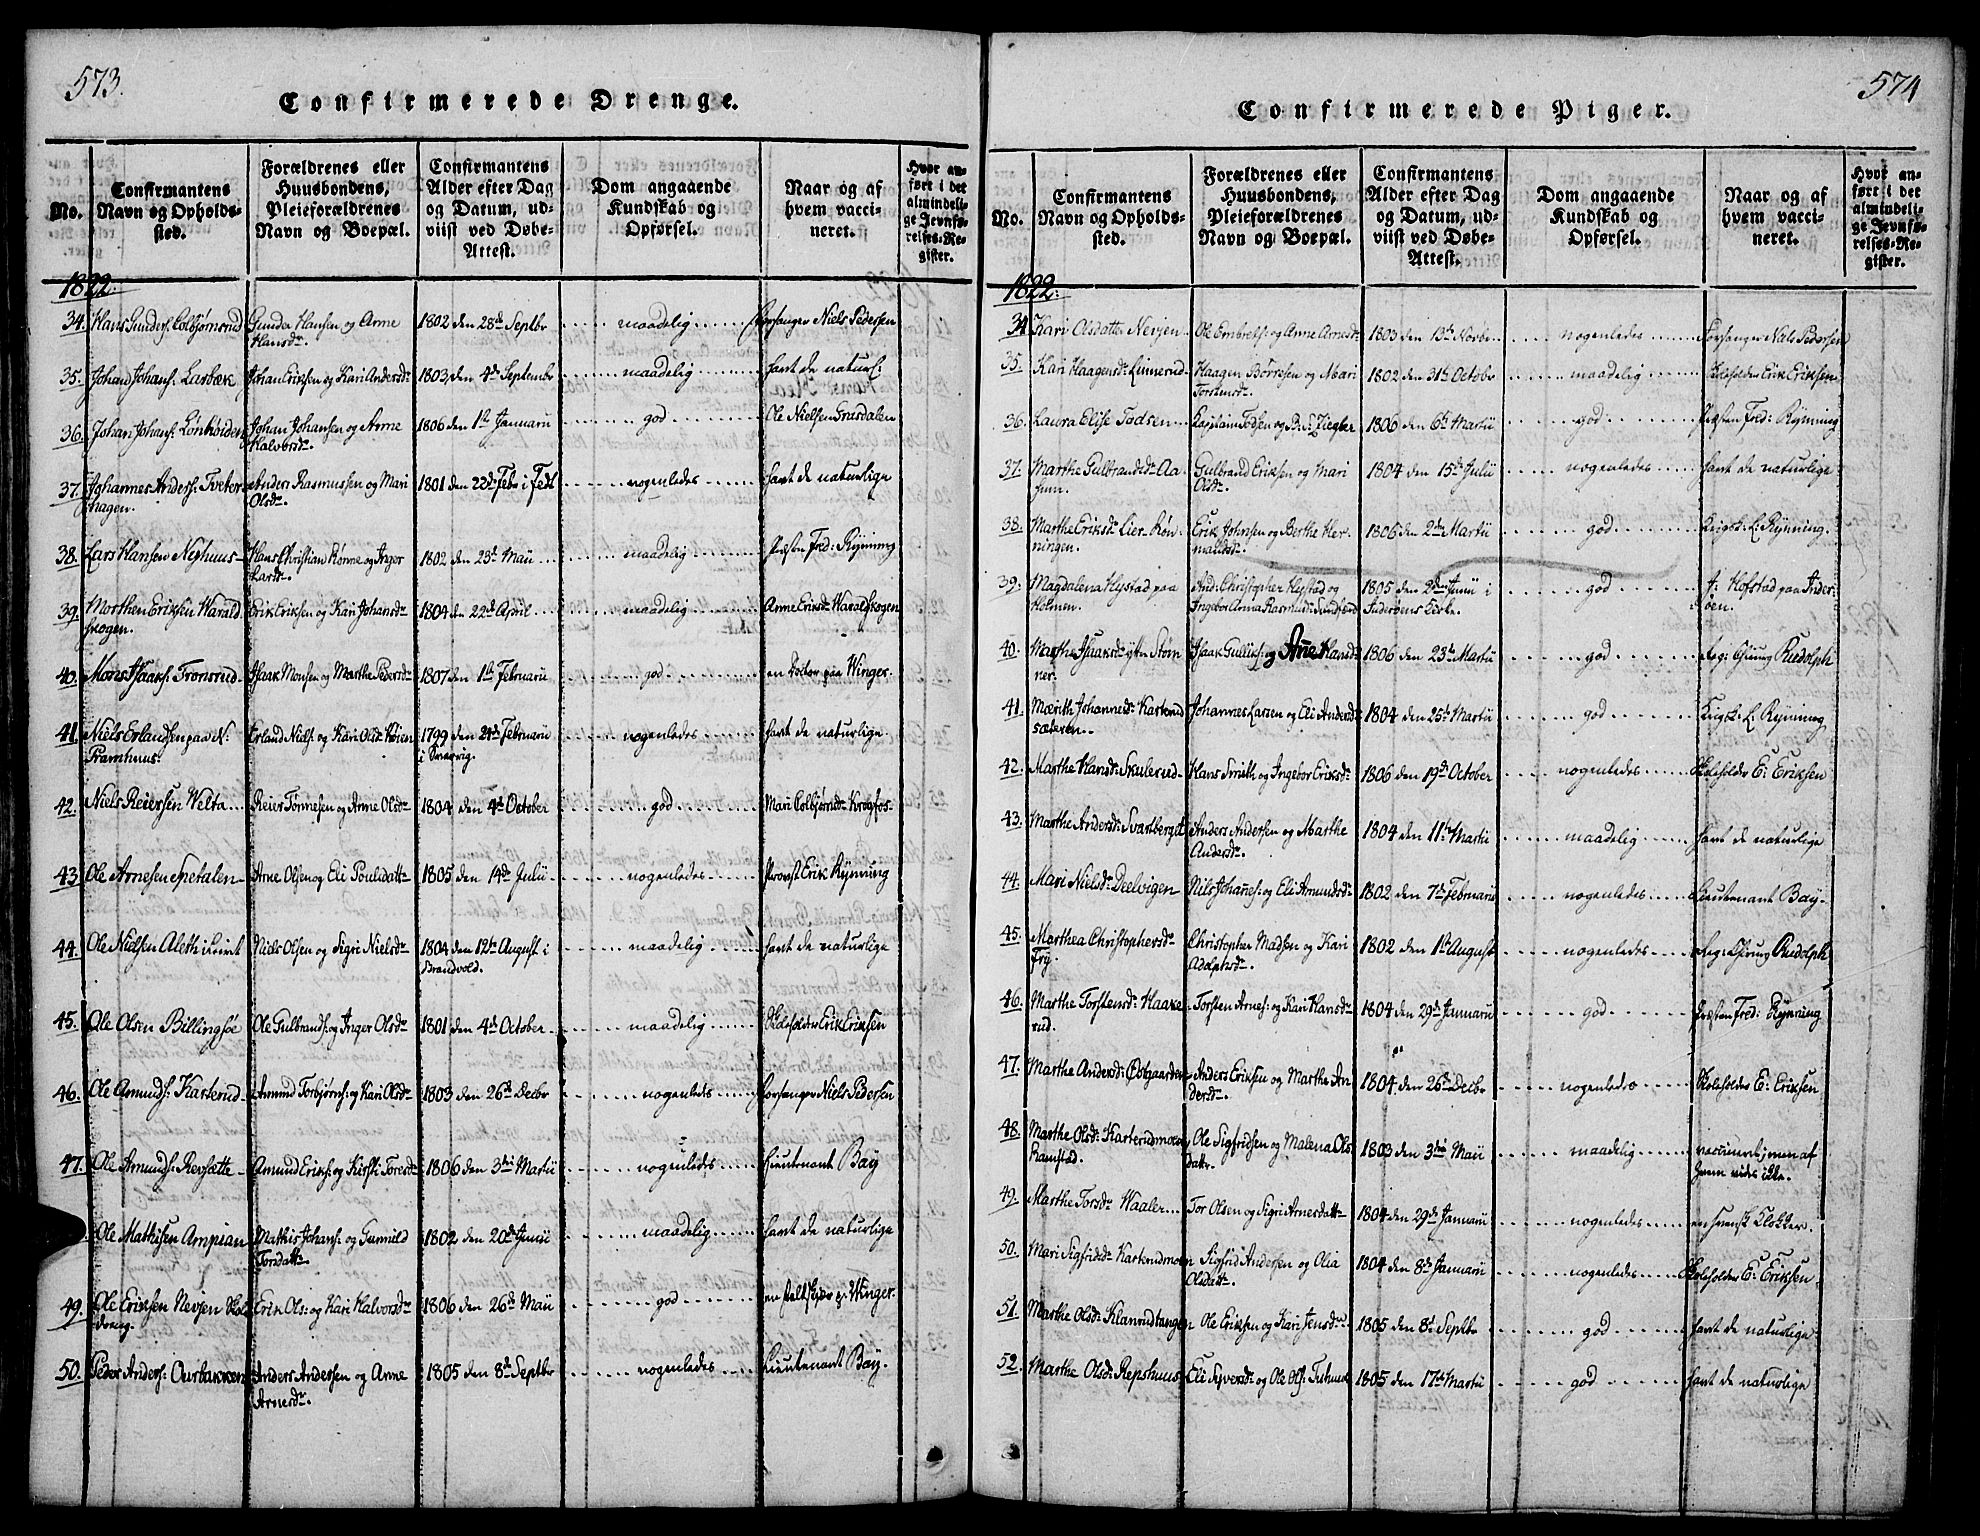 573.
Confirmerede Drenge.
No.
Confirmantens
Navn og Opholds-
sted.
Forældrenes eller
Huusbondens,
Pleieforældrenes
Navn og Boepæl.
Confirmantens
Alder efter Dag
og Datum, ud-
viist ved Døbe-
Attest.
Dom angaaende
Kundskab og
Opførsel.
Naar og af
hvem vacci-
neret.
Hvor an-
ført i det
almindeli-
ge Jevnfø-
relses-Re-
gister.
1822.
34. Hans Gunders. Colbjørnsrud Gunder Hansen og Anne 1802 den 28d Septbr maadelig Forsanger Niels Pedersen
Hansdr.
35. Johan Johans. Larbæk Johan Eriksen og Kari Andersdr 1803, den 4d Septembr maadelig havt de naturl:
36. Johan Johans. Johan Johansen og Anne 1806 den 1st Januarii god Ole Nielsen
Halvorsdr.
37. Johannes Anders. Tveter Anders Rasmussen og Mari 1801 den 22d Febr i nogenledes havt de naturlige
hagen. Olsdr.
38. Lars Hansen Nephuus Hans Christian Rønne og Inger 1802 den 23d Maii maadelig Præsten Fred: Rynning
Larsdr.
39. Morthen Eriksen Warald Erik Eriksen og Kari Johansdr 1804 den 22d April maadelig Anne Eriksdr Waraldskogen
skogen.
40. Mons Isaaks. Tronsrud Isaak Monsen og Marthe Pedersdr 1807 den 1st Februarii god en Doctor paa Winger.
41. Niels Erlandsen paa N: Erland Niels. og Kari Olsdr 1799 den 24d Februarii nogenledes havt de naturlige.
Pramhuus. i
42. Niels Reiersen Welta Reier Tønnesen og Anne Olsdr 1804 den 4d October god Mari Colbjørnsdr Krogfos.
43. Ole Arnesen Spetalen Arne Olsen og Eli Poulsdattr 1805 den 14d Julii nogenledes Provst Erik Rynning
44. Ole Nielsen Aleth i Niels Olsen og Sigri Nielsdr 1804 den 12te August i maadelig havt de naturlige
Brandvold.
45. Ole Olsen Billingsøe Ole Gulbrands. og Inger Olsdr 1801 den 4d October maadelig Skoleholder Erik Eriksen
46. Ole Amunds. Karterud Amund Torbjørns. og Kari Olsdr 1803 den 26d Decbr nogenledes Forsanger Niels Pedersen
47. Ole Amunds. Revsætte Amund Eriks. og Kirsti Toresdr 1806 den 3die Martii nogenledes Lieutenant Bay
Ole Mathisen Ampian Mathis Johans. og Gunnild 1802 den 20d Junii maadelig havt de naturlige
Torsdattr.
49. Ole Eriksen Nevjen Erik Ols. og Kari Halvorsdr 1806 den 26d Maii god en p: Winger.
dreng.
50. Peder Anders. Ourbakken Anders Andersen og Anne 1805 den 8d Septbr nogenledes Lieutenant Bay.
Arnesdr.
574
Confirmerede Piger.
No.
Confirmantens
Navn og Opholds-
sted.
Forældrenes eller
Huusbondens,
Pleieforældrenes
Navn og Boepæl.
Confirmantens
Alder efter Dag
og Datum, ud-
viist ved Døbe-
Attest.
Dom angaaende
Kundskab og
Opførsel.
Naar og af
hvem vacci-
neret.
Hvor an-
ført i det
almindeli-
ge Jevnfø-
relses-Re-
gister.
1822.
34. Kari Olsdattr Nevjen Ole Embrets. og Anne Arnesdr 1803 den 13d Novbr nogenledes Forsanger Niels Pedersen
35. Kari Haagensdr Linnerud Haagen Børresen og Mari 1802 den 31te October maadelig Skoleholder Erik Eriksen
Torstensdr.
36. Laura Elise Todsen Kapitain Todsen og Ziegler 1806 den 6te Martii god Præsten Fred: Rynning
37. Marthe Gulbrandsdr Aa Gulbrand Eriksen og Mari 1804 den 15d Julii nogenledes havt de naturlige
Olsdr.
38. Marthe Eriksdr Lier Røn Erik Johnsen og Berthe Her 1806 den 2den Martii god L. Rynning.
ningen. mandsdr.
39. Magdalena Hystad paa And. Christopher Hystad og 1805 den 2den Junii i god J: Hofstad paa Inder
Holmen. Ingebor Anna Rasmusdr oen.
40. Marthe Isaaksdr Isaak Gulliks. og Anne Hansdr 1806 den 23de Martii god Reg: Chirurg Rudolph
ner.
41. Mærith Johannesdr Karterud Johannes Larsen og Eli Andersdr 1804 den 25de Martii god L. Rynning
sæteren.
42. Marthe Hansdr Skulerud Hans Smith og Ingebor Eriksdr 1806 den 19de October nogenledes Skoleholder E. Eriksen
43. Marthe Andersdr Svartberget Anders Andersen og Marthe 1804 den 11te Martii maadelig havt de naturlige
Andersdr.
44. Mari Nielsdr Deelvigen Nils Johanes. og Eli Amundsdr 1802 den 7de Februarii nogenledes Lieutenant Bay
45. Marthea Christophersdr Christopher Madsen og Kari 1802 den 1st August nogenledes Reg: Chirurg Rudolph
Fry. Adolphsdr.
46. Marthe Torstensdr Haake Torsten Arnes. og Kari Hansdr 1804 den 29de Januarii god Præsten Fred: Rynning
rud.
47. Marthe Andersdr Østgaarden Anders Eriksen og Marthe An 1804 den 26de Decbr nogenledes Skoleholder E. Eriksen
dersdr.
48. Marthe Olsdr Karterudmoen Ole Sigfridsen og Malena Ols 1803 den 3die Maii maadelig vaccineret; men af
dattr. hvem vides ikke.
49. Marthe Torsdr Waaler Tor Olsen og Sigri Arnesdattr 1804 den 29de Januarii nogenledes en svensk Klokker.
50. Mari Sigfridsdr Karterudmoen Sigfrid Andersen og Olia 1804 den 8de Januarii nogenledes Skoleholder E. Eriksen.
Olsdattr.
51. Marthe Olsdr Klanrudtangen Ole Eriksen og Kari Jensdr 1805 den 8d Septbr god havt de naturlige
52. Marthe Olsdr Repshuus Eli Syversdr og Ole Ols. 1805 den 17de Martii god havt de naturlige